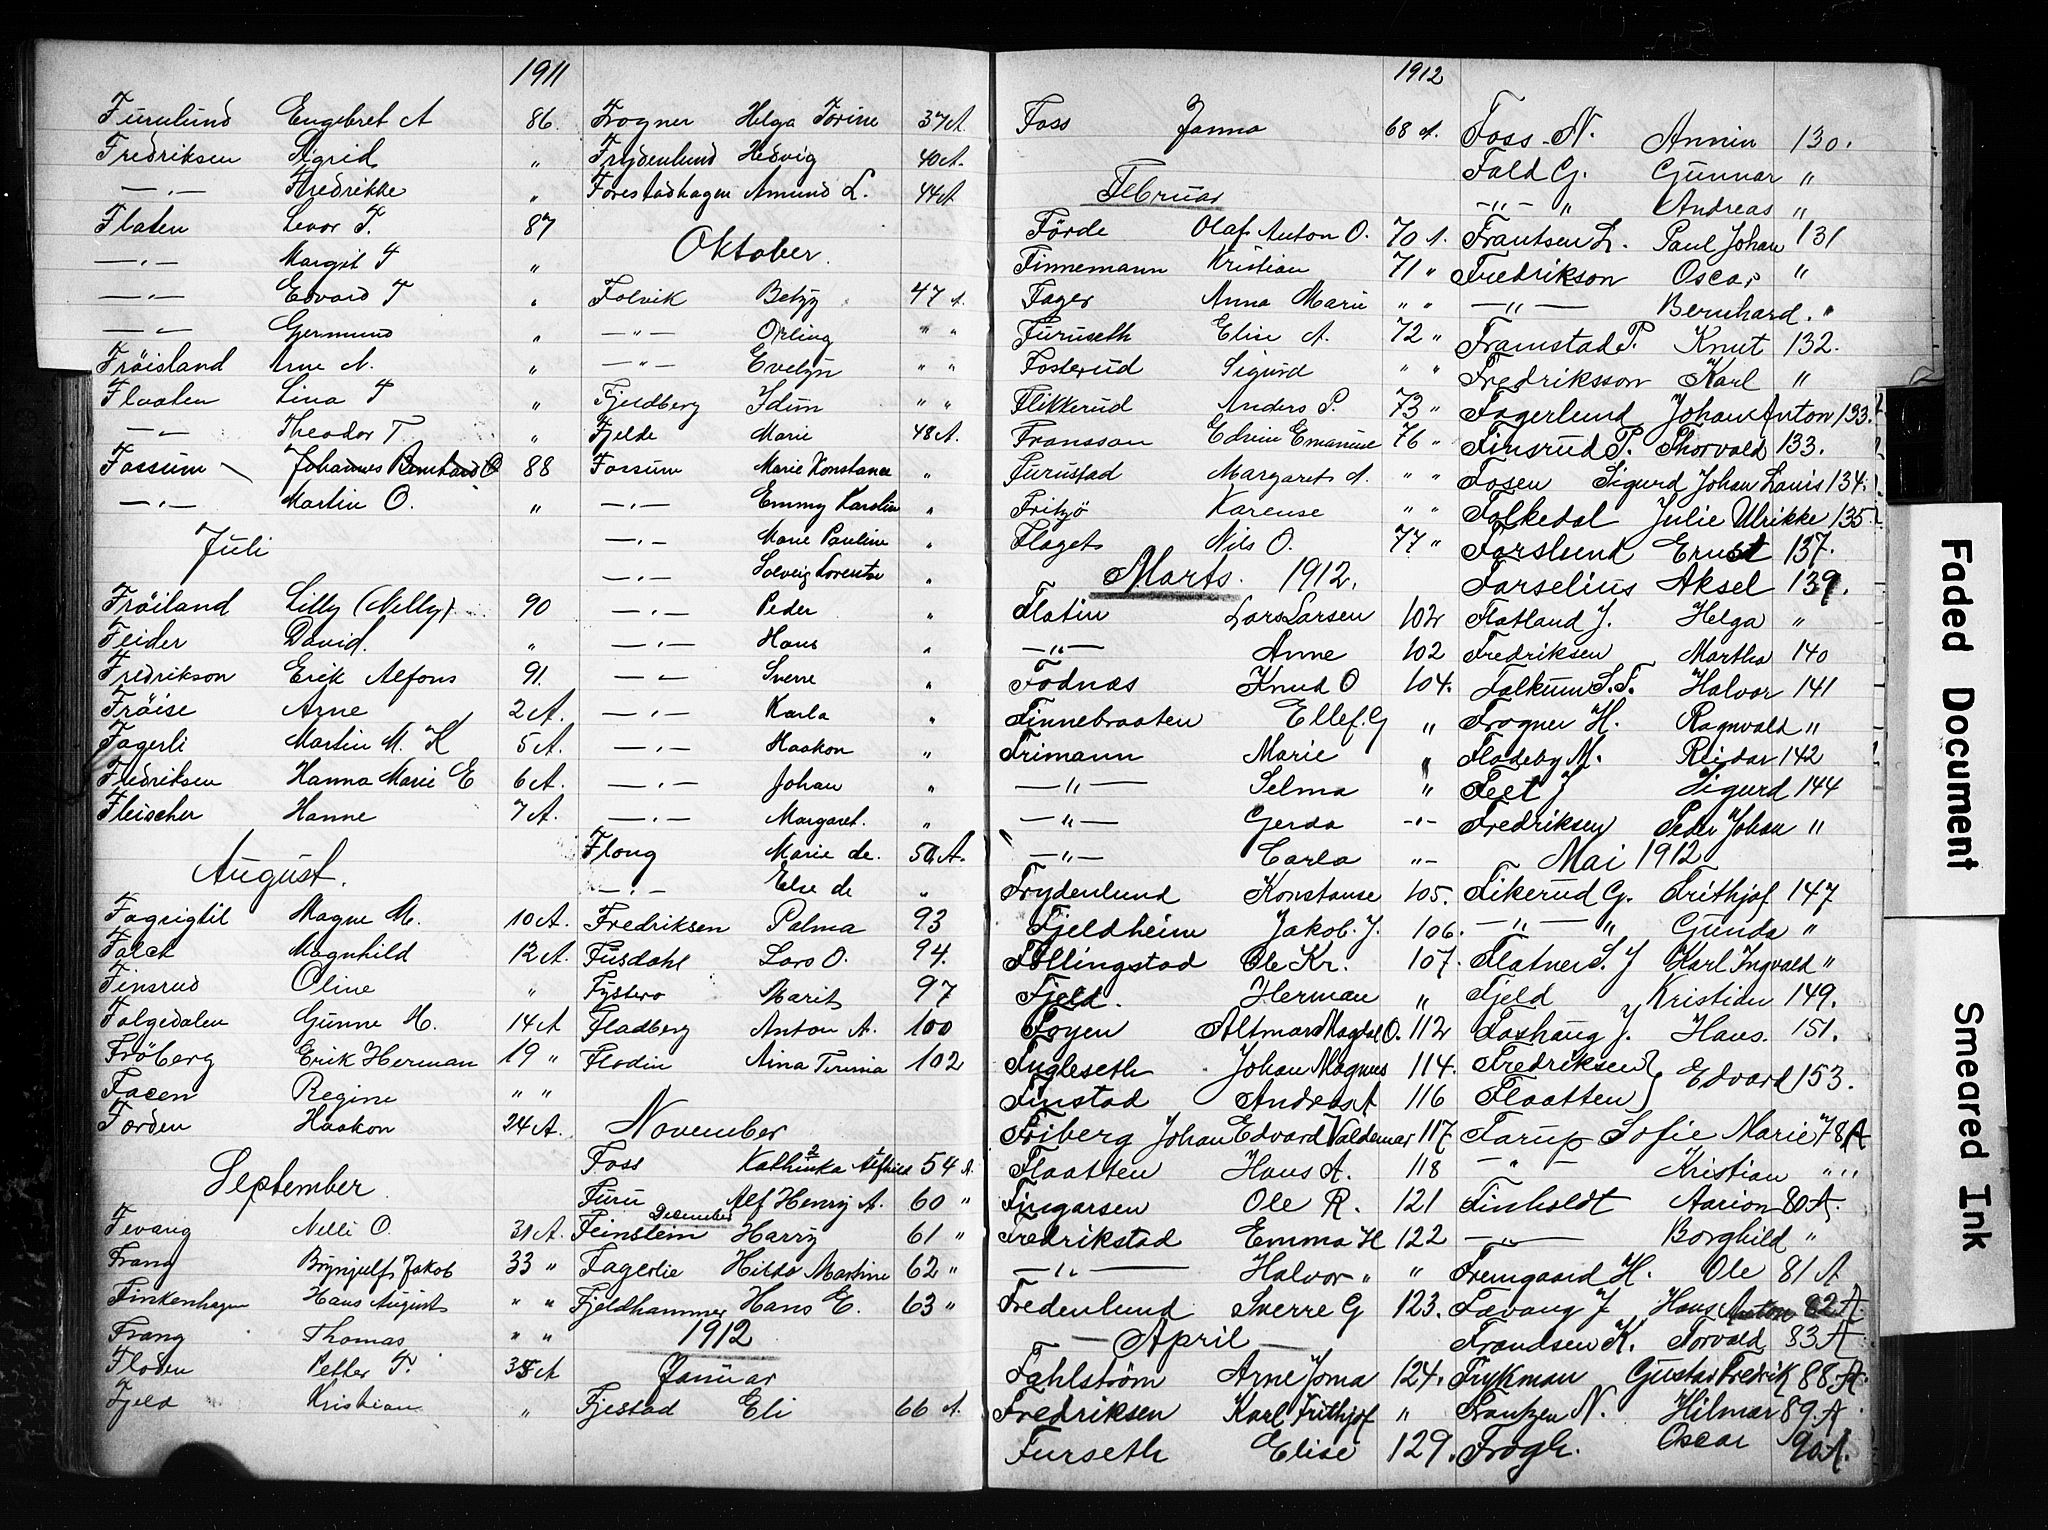 1911
Furulund Engebret A 86
Fredriksen Sigrid "
—"— Fredrikke "
Flaten Levor T. 87
—"— Margit T "
—"— Edvard T "
—"— Germund "
Fröisland Arne N. "
Flaaten Lina T "
—"— Theodor T. "
Fossum Johannes Bernhard O 88
—"— Martin O. "
Juli
Fröiland Lilly (Nelly) 90
Feider David. "
Fredrikson Erik Alfons 91.
Fröise Arne 2 A.
Fagerli Martin M. K 5 A.
Fredriksen Hanna Marie E 6 A.
Fleischer Hanne 7 A.
August.
Fagrigtil Magne M. 10 A.
Falck Magnhild 12 A.
Finsrud Oline "
Folgedalen Gunne H. 14 A
Fröberg Erik Herman 19 "
Faoen Regine " "
Forden Haakon 24 A.
September
Fevang Nelli O. 31 A.
Frang Brynjulf Jakob 33 "
Finkenhagen Hans August " "
Frang Thomas " "
Floden Petter T. 35 A
Fjeld Kristian "
Frogner Helga Jorine 37 A.
Frydenlund Hedvig 40 A.
Forestadhagen Amund L. 44 A
Oktober.
Folvik Betzy 47 A.
—"— Erling " "
—"— Evelyn " "
Fjeldberg Idun " "
Fjelde Marie 48 A.
Fossum Marie Konstance "
—"— Emmy Karoline "
—"— Marie Pauline "
Solveig Lorentse "
—"— Peder "
—"— Hans "
—"— Sverre "
—"— Karla "
—"— Haakon "
—"— Johan "
—"— Margaret. "
Flong Marie de. 50 A.
—"— Else de "
Fredriksen Palma 93
Fusdahl Lars O. 94.
Fystero Marit 97
Fladberg Anton A. 100
Flodin Aina Teresia 102
November
Foss Kathinka Alfhild 54 A.
Furu Alf Henry A. 60 "
December
Feinstein Harry 61 "
Fagerlie Hilda Martine 62 "
Fjeldhammer Hans E. 63 "
1912
Januar
Fjestad Eli 66 A.
1912
Foss Janna 68 A.
Februar
Förde Olaf Anton O. 70 A.
Finnemann Kristian 71 "
Fager Anna Marie " "
Furuseth Elise A. 72 "
Fosterud Sigurd " "
Flikkerud Anders P. 73 "
Fransson Edvin Emanuel 76 "
Furustad Margarets A. " "
Fritzjö Karense " "
Flaget Nils O. 77 "
Marts. 1912.
Flatin Lars Larsen 102
—"— Anne 102
Fodnæs Knud O 104.
Finnebraaten Ellef. G "
Frimann Marie "
—"— Selma "
—"— Gerda -"-
—"— Carla "-
Frydenlund Konstanse 105.
Fjeldheim Jakob. J. 106.
Föllingstad Ole Kr. 107.
Fjeld. Herman "
Foyen Altmar Magdal O. 112
Fugleseth Johan Magnus 114.
Finstad Andreas A 116
Friberg Johan Edvard Valdemar 117
Flaatten Hans A. 118
Fingarsen Ole R. 121
Fredrikstad Emma H 122
—"— Halvor " "
Fredenlund Sverre G 123.
— April —
Fahlström Arne Joma 124.
Fredriksen Karl Frithjof "
Furseth Elise 129.
Foss N. Annin 130.
Fald G. Gunnar "
—"— " Andreas "
Frantsen L. Paul Johan 131
Fredrikson Oscar "
—"— Bernhard. "
Framstad P. Knut 132.
Fredriksson Karl "
Fagerlund Johan Anton 133.
Finsrud P. Thorvald 133.
Fosen Sigurd Johan Louis 134.
Falkedal Julie Ulrikke 135.
Forslund Ernst 137.
Forselius Aksel 139.
Flatland J. Helga "
Fredriksen Martha 140
Falkum S. T. Halvor 141
Frogner H. Ragnvald "
Flodeby M. Reidar 142
Feet J Sigurd 144
Fredriksen Peder Johan "
Mai 1912
Fikerud G. Frithjof 147
—"— " Gunda "
Flatner S. J Karl Ingvald "
Fjeld J Kristian 149.
Foshaug J. Hans. 151.
Fredriksen } Edvard 153.
Flaatten }
Farup Sofie Marie 78 A
—"— Kristian " "
Finholdt Aarion 80 A.
—"— Borghild "
Fremgaard H. Ole 81 A
Fævang J Hans Anton 82 A.
Frandsen K. Torvald 83 A
Frykman Gustav Fredrik 88 A.
Frantzen N. Hilmar 89. A
Frogh. Oscar 90 A.
Faded Document
Smeared Ink